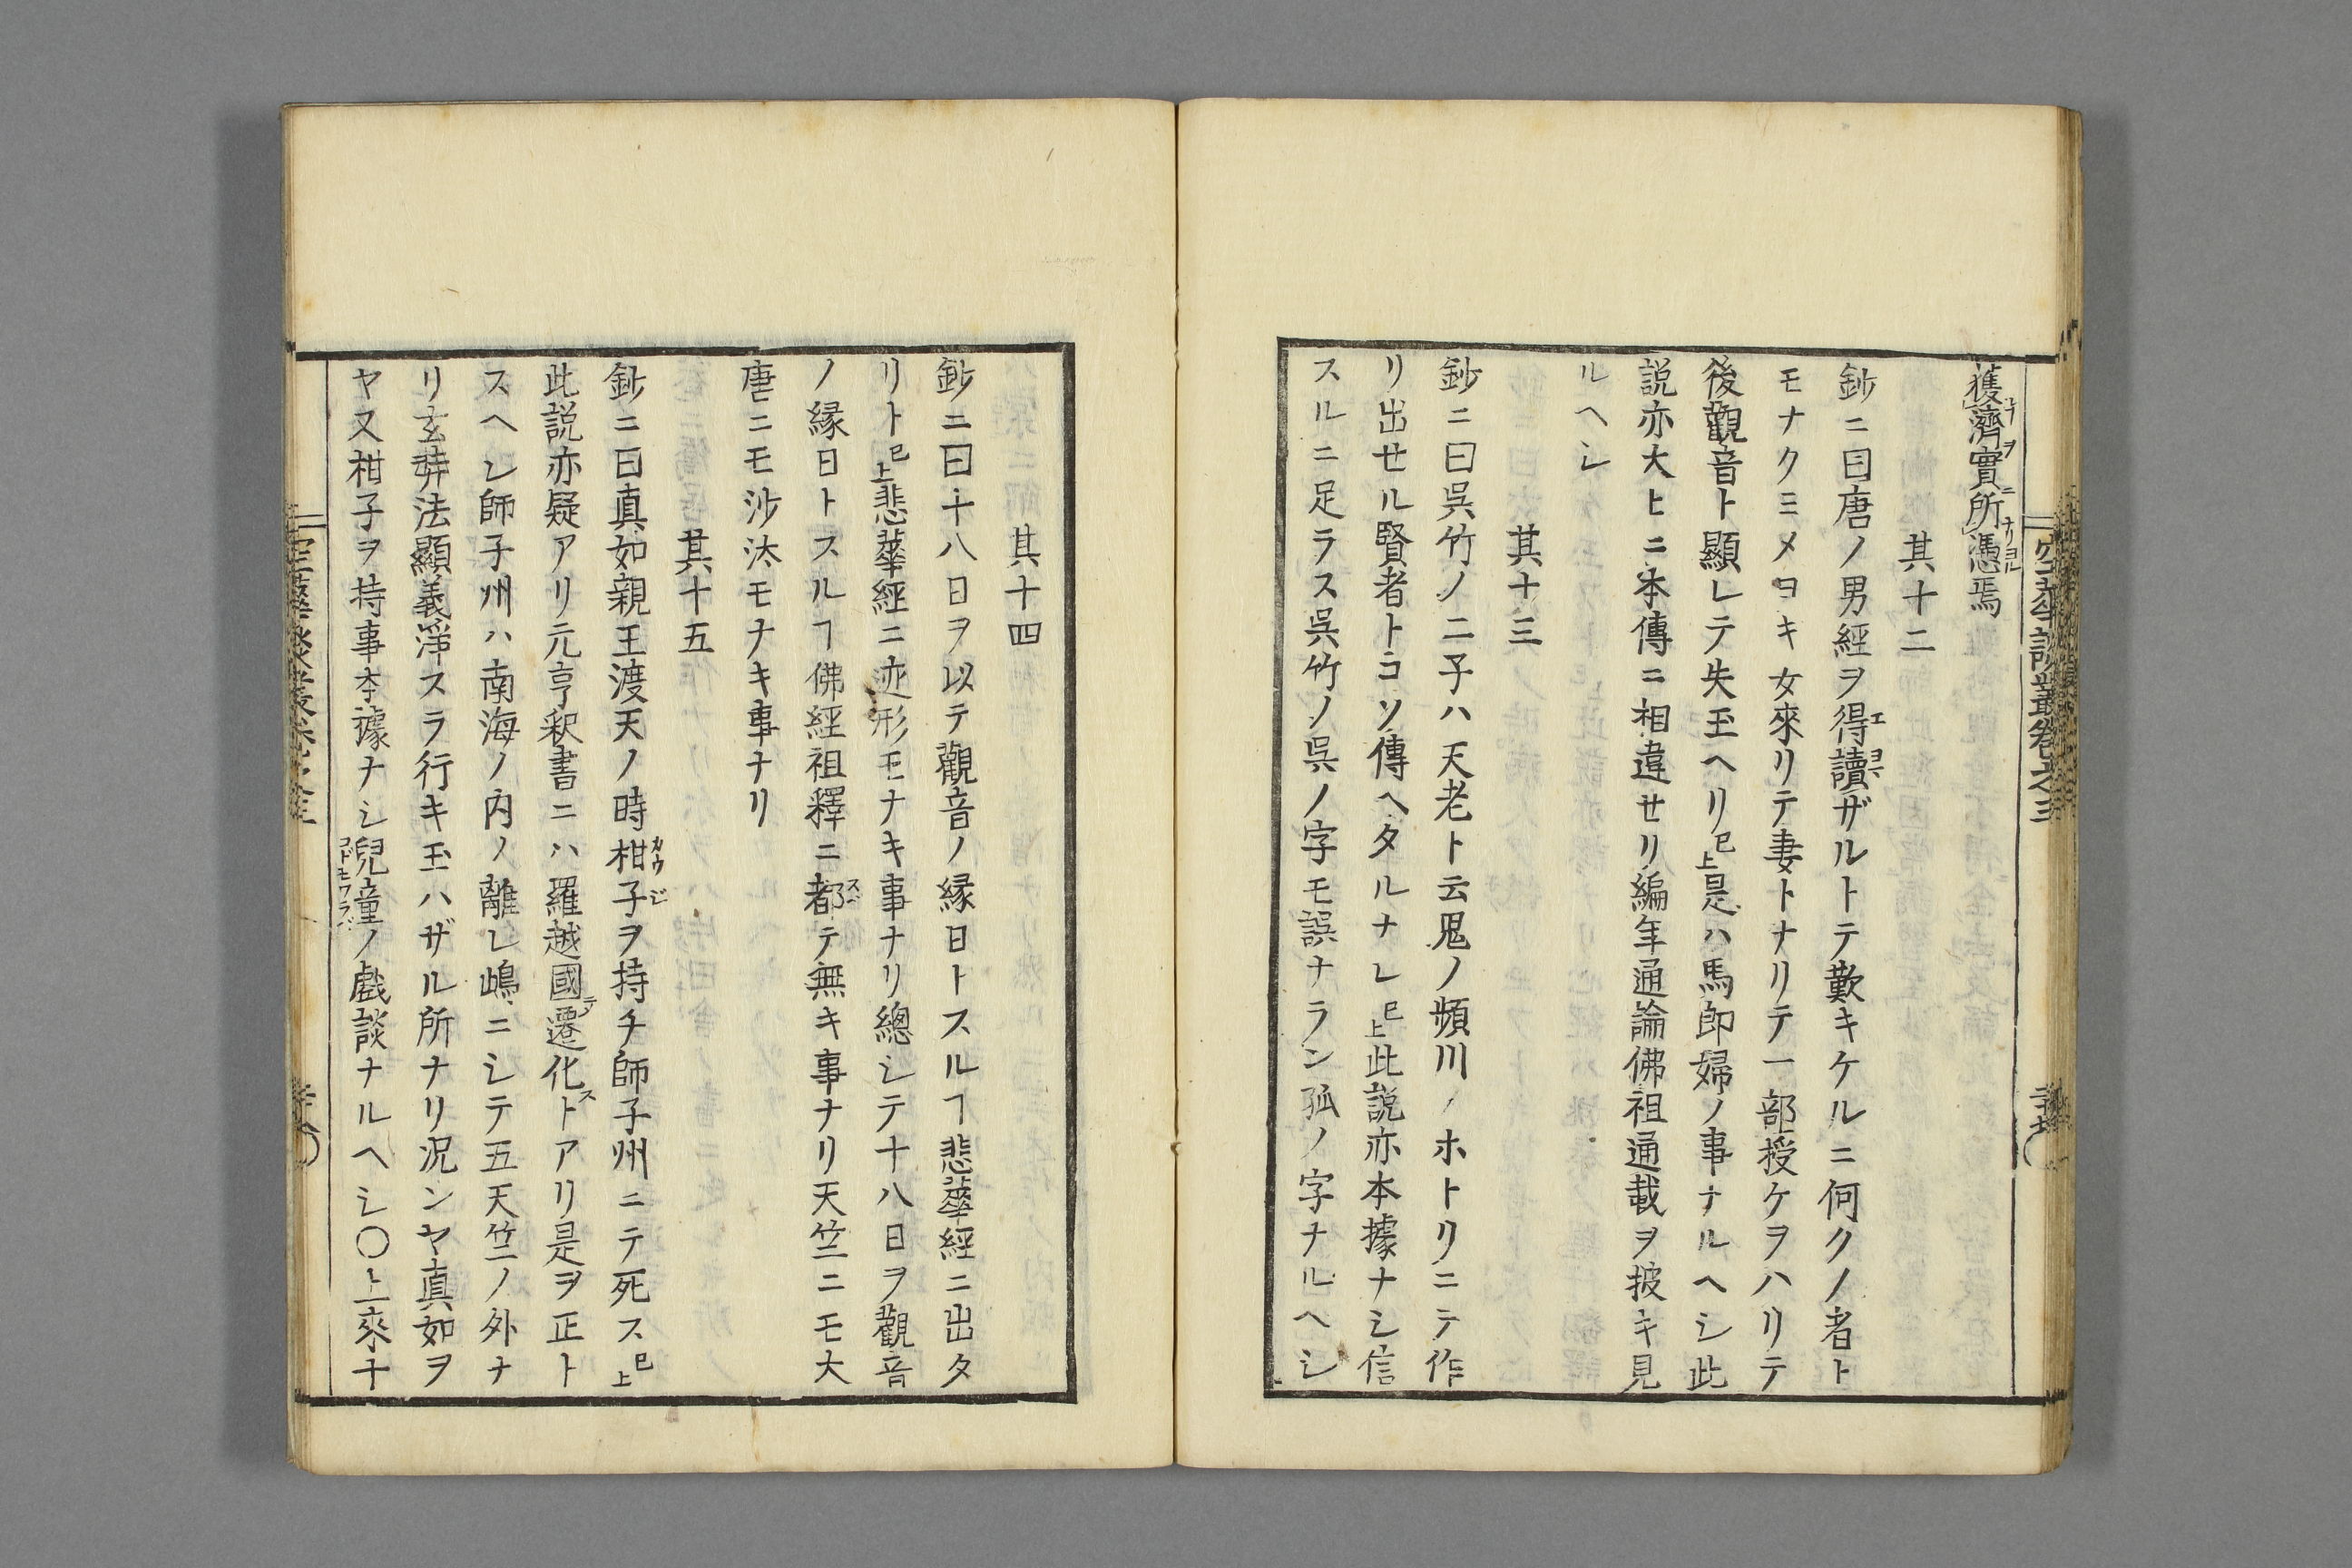 獲濟實所憑焉
其十二
鈔ニ曰唐ノ男經ヲ得讀ザルトテ歎キケルニ何クノ者ト
モナクミメヨキ女來リテ妻トナリテ一部授ケヲハリテ
後觀音ト顯レテ失玉ヘリ已上是ハ馬郎婦ノ事ナルヘシ此
説亦大ヒニ本傳ニ相違セリ編年通論佛祖通載ヲ披キ見
ルヘシ
其十三
鈔ニ曰呉竹ノ二子ハ天老ト云鬼ノ頻川ノホトリニテ作
リ出せル賢者トコソ傳ヘタルナレ已上此説亦本據ナシ信
スルニ足ラス呉竹ノ呉ノ字モ誤ナラン孤ノ字ナルヘシ
空華談叢卷之三
其十四
鈔ニ曰十八日ヲ以テ觀音ノ縁日トスルヿ悲華經ニ出タ
リト已上悲華經ニ迹形モナキ事ナリ總シテ十八日ヲ觀音
ノ縁日トスルヿ佛經祖釋ニ都テ無キ事ナリ天竺ニモ大
唐ニモ沙汰モナキ事ナリ
其十五
鈔ニ曰真如親王渡天ノ時柑子ヲ持チ師子州ニテ死ス已上
此説亦疑アリ元亨釈書ニハ羅越國遷化トアリ是ヲ正ト
スヘレ師子州ハ南海ノ内ノ離レ嶋ニシテ五天竺ノ外ナ
リ玄弉法顯義淨スラ行キ玉ハザル所ナリ况ンヤ真如ヲ
ヤ又柑子ヲ持事本據ナシ兒童ノ戯談ナルヘシ〇上來十